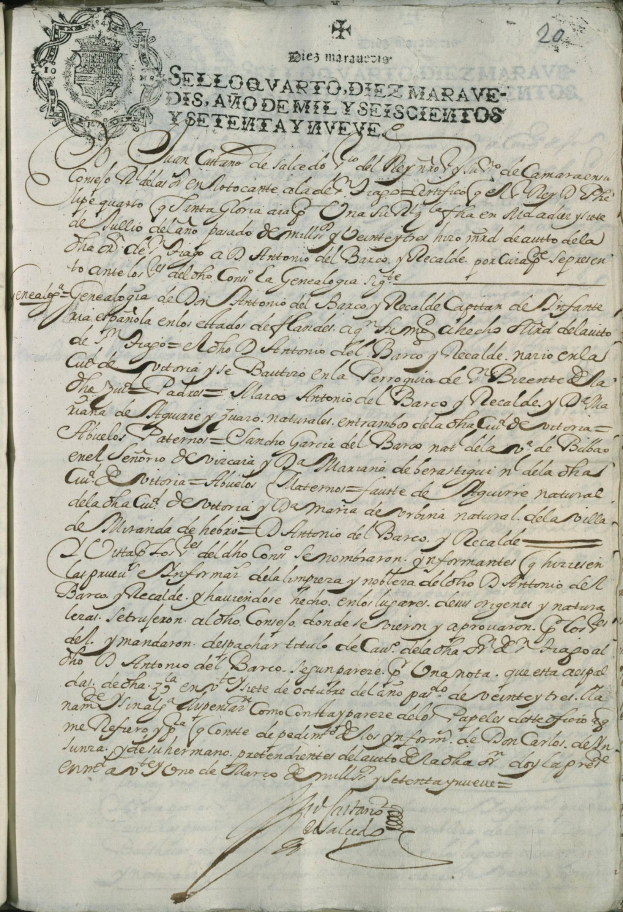 20
Diez maravedis
SELLOQVARTO, DIEZ MARAVE-
DIS, AÑO DE MIL Y SEISCIENTOS
Y SETENTA Y NVEVE
D. Juan Cattaño de Salcedo del Rey nro de Camara en su
Consejo en lo tocante a la de certifico q el Rey D. Phe
lipe quarto q Santa Gloria aia Una fha en Md a diez y siete
de Jullio del año pasado de mill y Veinte y tres hizo mrd de auito de la
dha de a D Antonio del Barco, y Recalde, por cuia se presen
to ante los del dho Conso La Genealogia
Genealogia de Don Antonio del Barco, y Recalde Capitan de Infante
ria española en los estados de flandes, a q su a hecho Mrd del auito
de = El dho D Antonio del Barco y Recalde, nacio en la
Ciu. de Vitoria y se Bautizo en la Perroquia de Sn Bizente de la
dha = Padres = Marco Antonio del Barco, y Recalde, y Da Ma
riana de Aguirre y naturales, entrambos de la dha Ciu. de Vitoria =
Abuelos Paternos = Sancho Garcia del Barco nat. de la Va de Bilbao
en el Señorio de vizcaia y Da Mariana de berastigui na de la dha
Ciu. de Vitoria = Abuelos Maternos = fauste de Aguirre natural
de la dha Ciu. de Vitoria y Da maria de Vrbina natural de la Villa
de Miranda de hebro = D Antonio del Barco, y Recalde
Y Vista del dho Conso Se nombraron ynformantes q hiziesen
las e de la limpieza y nobleza del dho D Antonio del
Barco, y Recalde, y hauiendose hecho, en los lugares, de sus origenes y natura
lezas, se truxeron al dho Consejo, donde se Vieron y aprovaron, p los
del y mandaron, despachar titulo de Cauo de la dha al
dho D Antonio del Barco. Segun pareze, p Una nota que esta a espal
das, de dha en Vte y siete de octubre del año pasdo de Veinte y tres. lla
nam Como Consta y pareze de los Papeles deste oficio a q
me Refiero y q Conste de pedimto de los de Don Carlos, de
y de su hermano, pretendientes del auito de la dha doy la prete
en Md a Vte y Uno de Março de mill y Setenta y nueve =
Jun Cattaño
de Salcedo